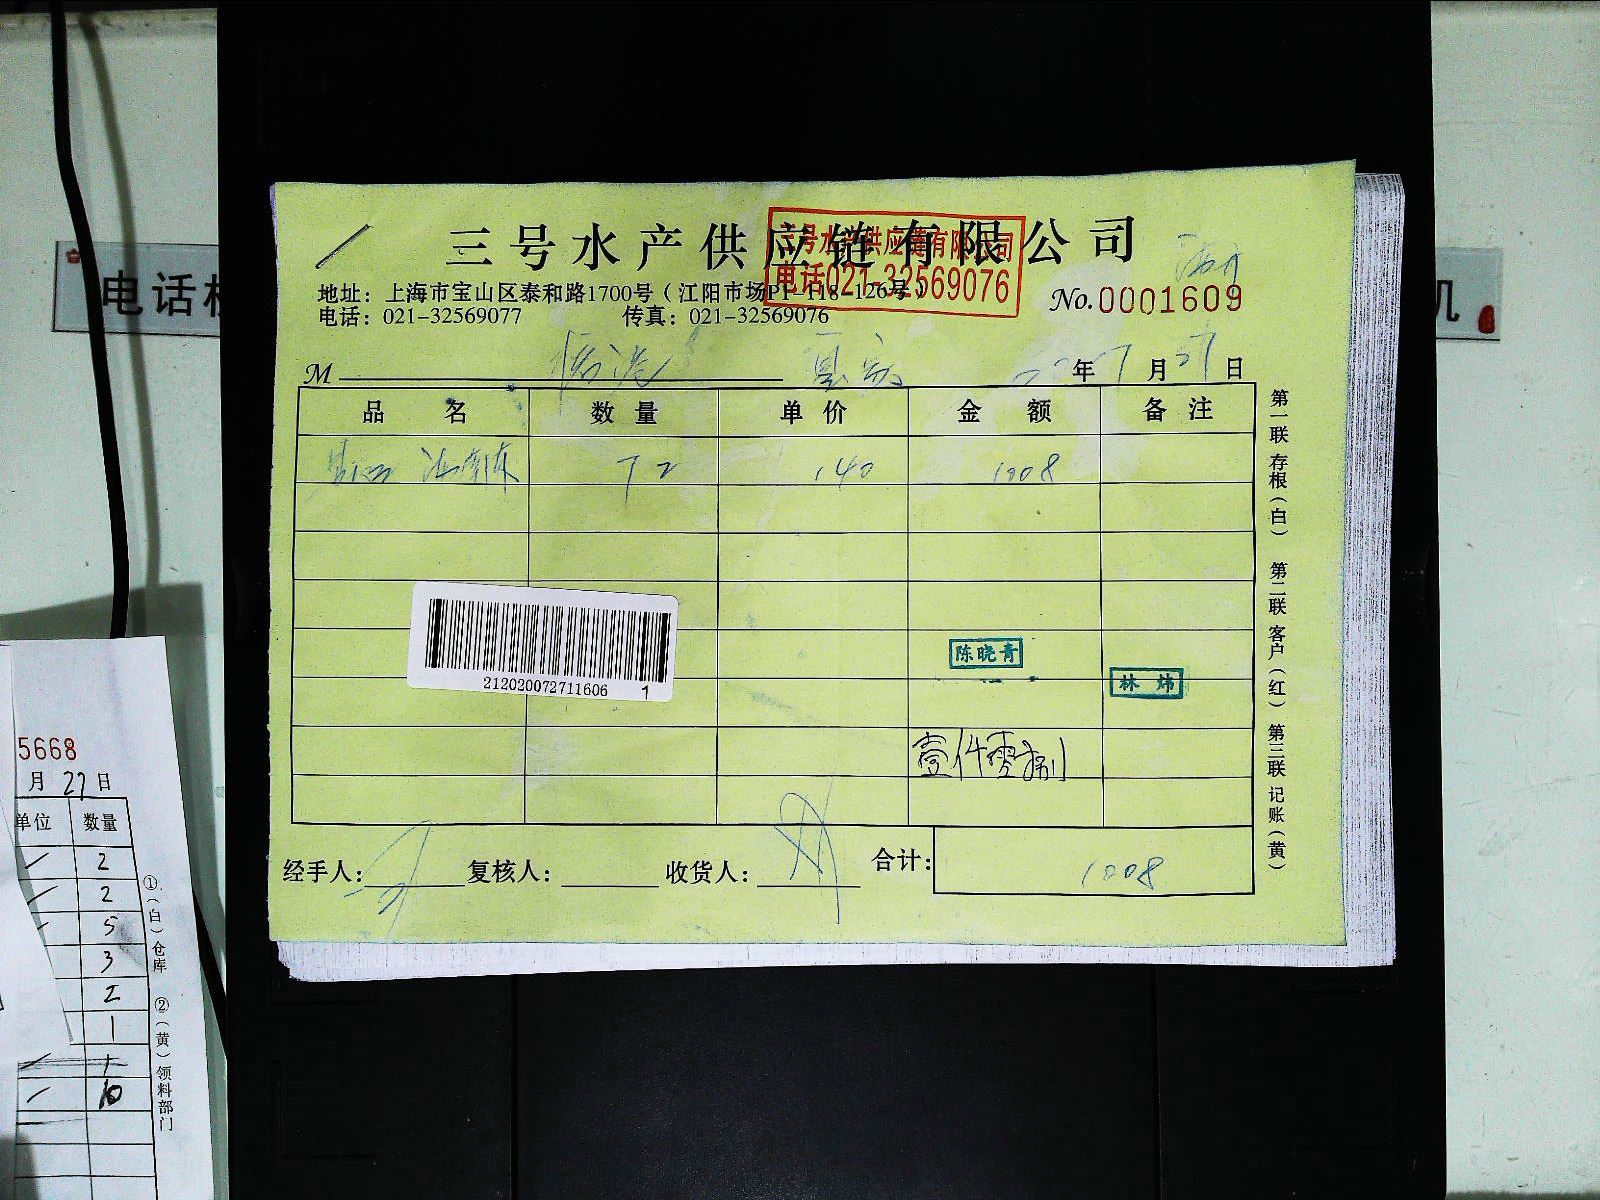 三号水产供应链有限公司
三号水产供应链有限公司
电话021-32569076
地址：上海市宝山区泰和路1700号（江阳市场P1-118-126号）
电话：021-32569077 传真：021-32569076
No.0001609
M 年 7 月 27 日
品 名 数 量 单 价 金 额 备 注
72 140 1008
212020072711606 1
陈晓青
林 炜
壹仟零捌
经手人： 复核人： 收货人： 合计： 1008
第一联 存根（白） 第二联 客户（红） 第三联 记账（黄）
电话
机
5668
月 27 日
单位 数量
2
2
5
3
2
1
10
①（白）仓库 ②（黄）领料部门